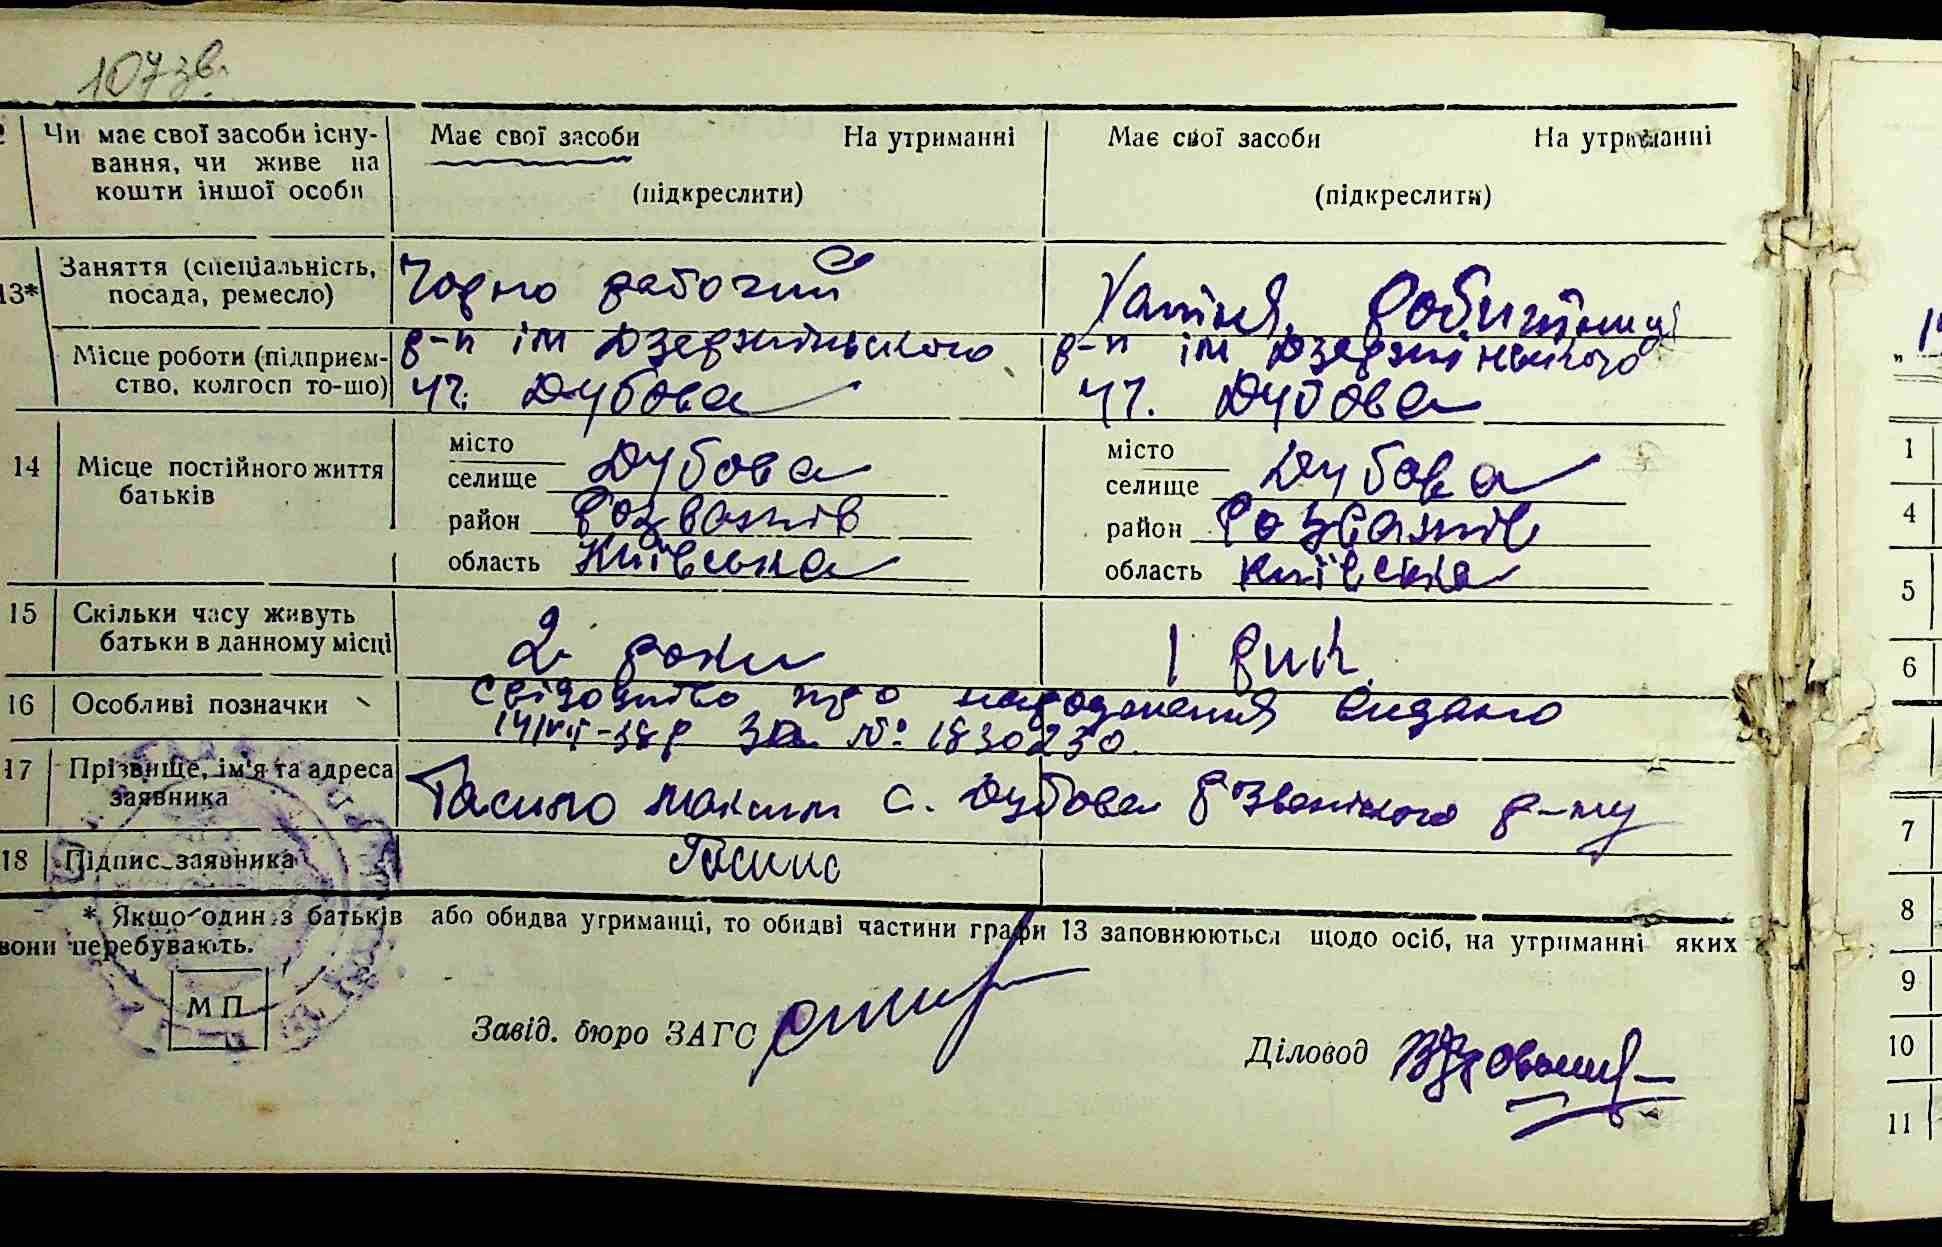 107 зв.
Чи має свої засоби існу-
вання, чи живе на
кошти іншої особи
Має свої засоби На утриманні
(підкреслити)
Має свої засоби На утриманні
(підкреслити)
13* Заняття (спеціальність,
посада, ремесло)
Чорно рабочий
Хатня
Місце роботи (підприєм-
ство, колгосп то-що)
р-п ім Дзержинського
уч. Дубова
р-п ім Дзержинського
уч. Дубова
14 Місце постійного життя
батьків
місто
селище Дубова
район Розважів
область Київська
місто
селище Дубова
район Розважів
область Київська
15 Скільки часу живуть
батьки в данному місці
2 роки
1 рик
16 Особливі позначки
Свідоцтво про народження видано
14/VII-38р За № 1830230.
17 Прізвище, ім'я та адреса
заявника
Максим с. Дубова р-ну
18 Підпис заявника
* Якщо один з батьків або обидва утриманці, то обидві частини графи 13 заповнюються щодо осіб, на утриманні яких
вони перебувають.
МП
Завід. бюро ЗАГС
Діловод
1
4
5
6
7
8
9
10
11